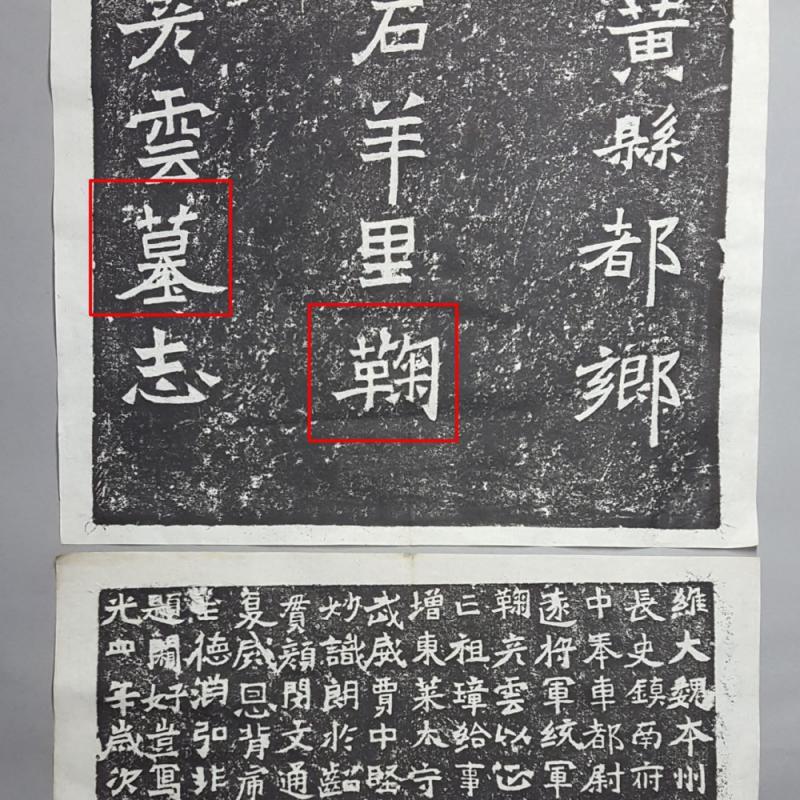 黄縣都鄉
石羊里鞠
彦雲墓志
維大魏本州
長史鎮南府
中奉車都尉
遠将軍統軍
鞠彦雲以正
亡祖璋給事
增東萊太守
武威賈中堅
妙識朗於齠
賁顔閔文通
夏威恩背
德消弘非
題關好豈寫
光四年歲次